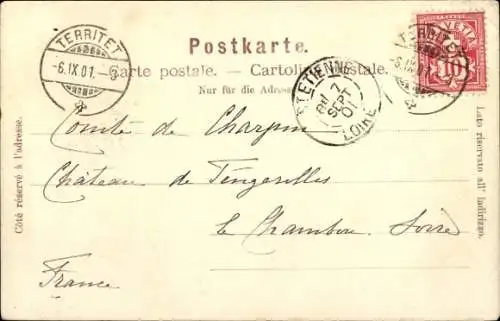 Postkarte.
Carte postale. — Cartolina postale.
Nur für die Adresse
TERRITET
-6.IX.01.-6
ST ETIENNE
7
SEPT
01
LOIRE
HELVETIA
10
TERRITET
-6.IX.01.
Côté réservé à l'adresse.
Lato riservato all' indirizzo.
Comte de Charpin
Château de Feugerolles
le Chambon. Loire
France